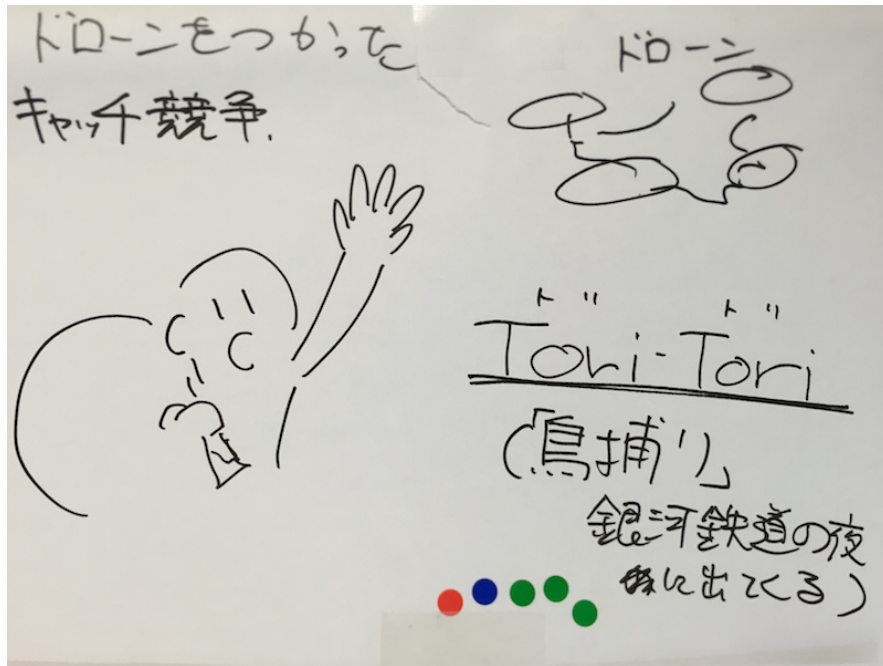 ドローンをつかった
キャッチ競争.
ドローン
Tori-Tori
(「鳥捕り」
銀河鉄道の夜
に出てくる)